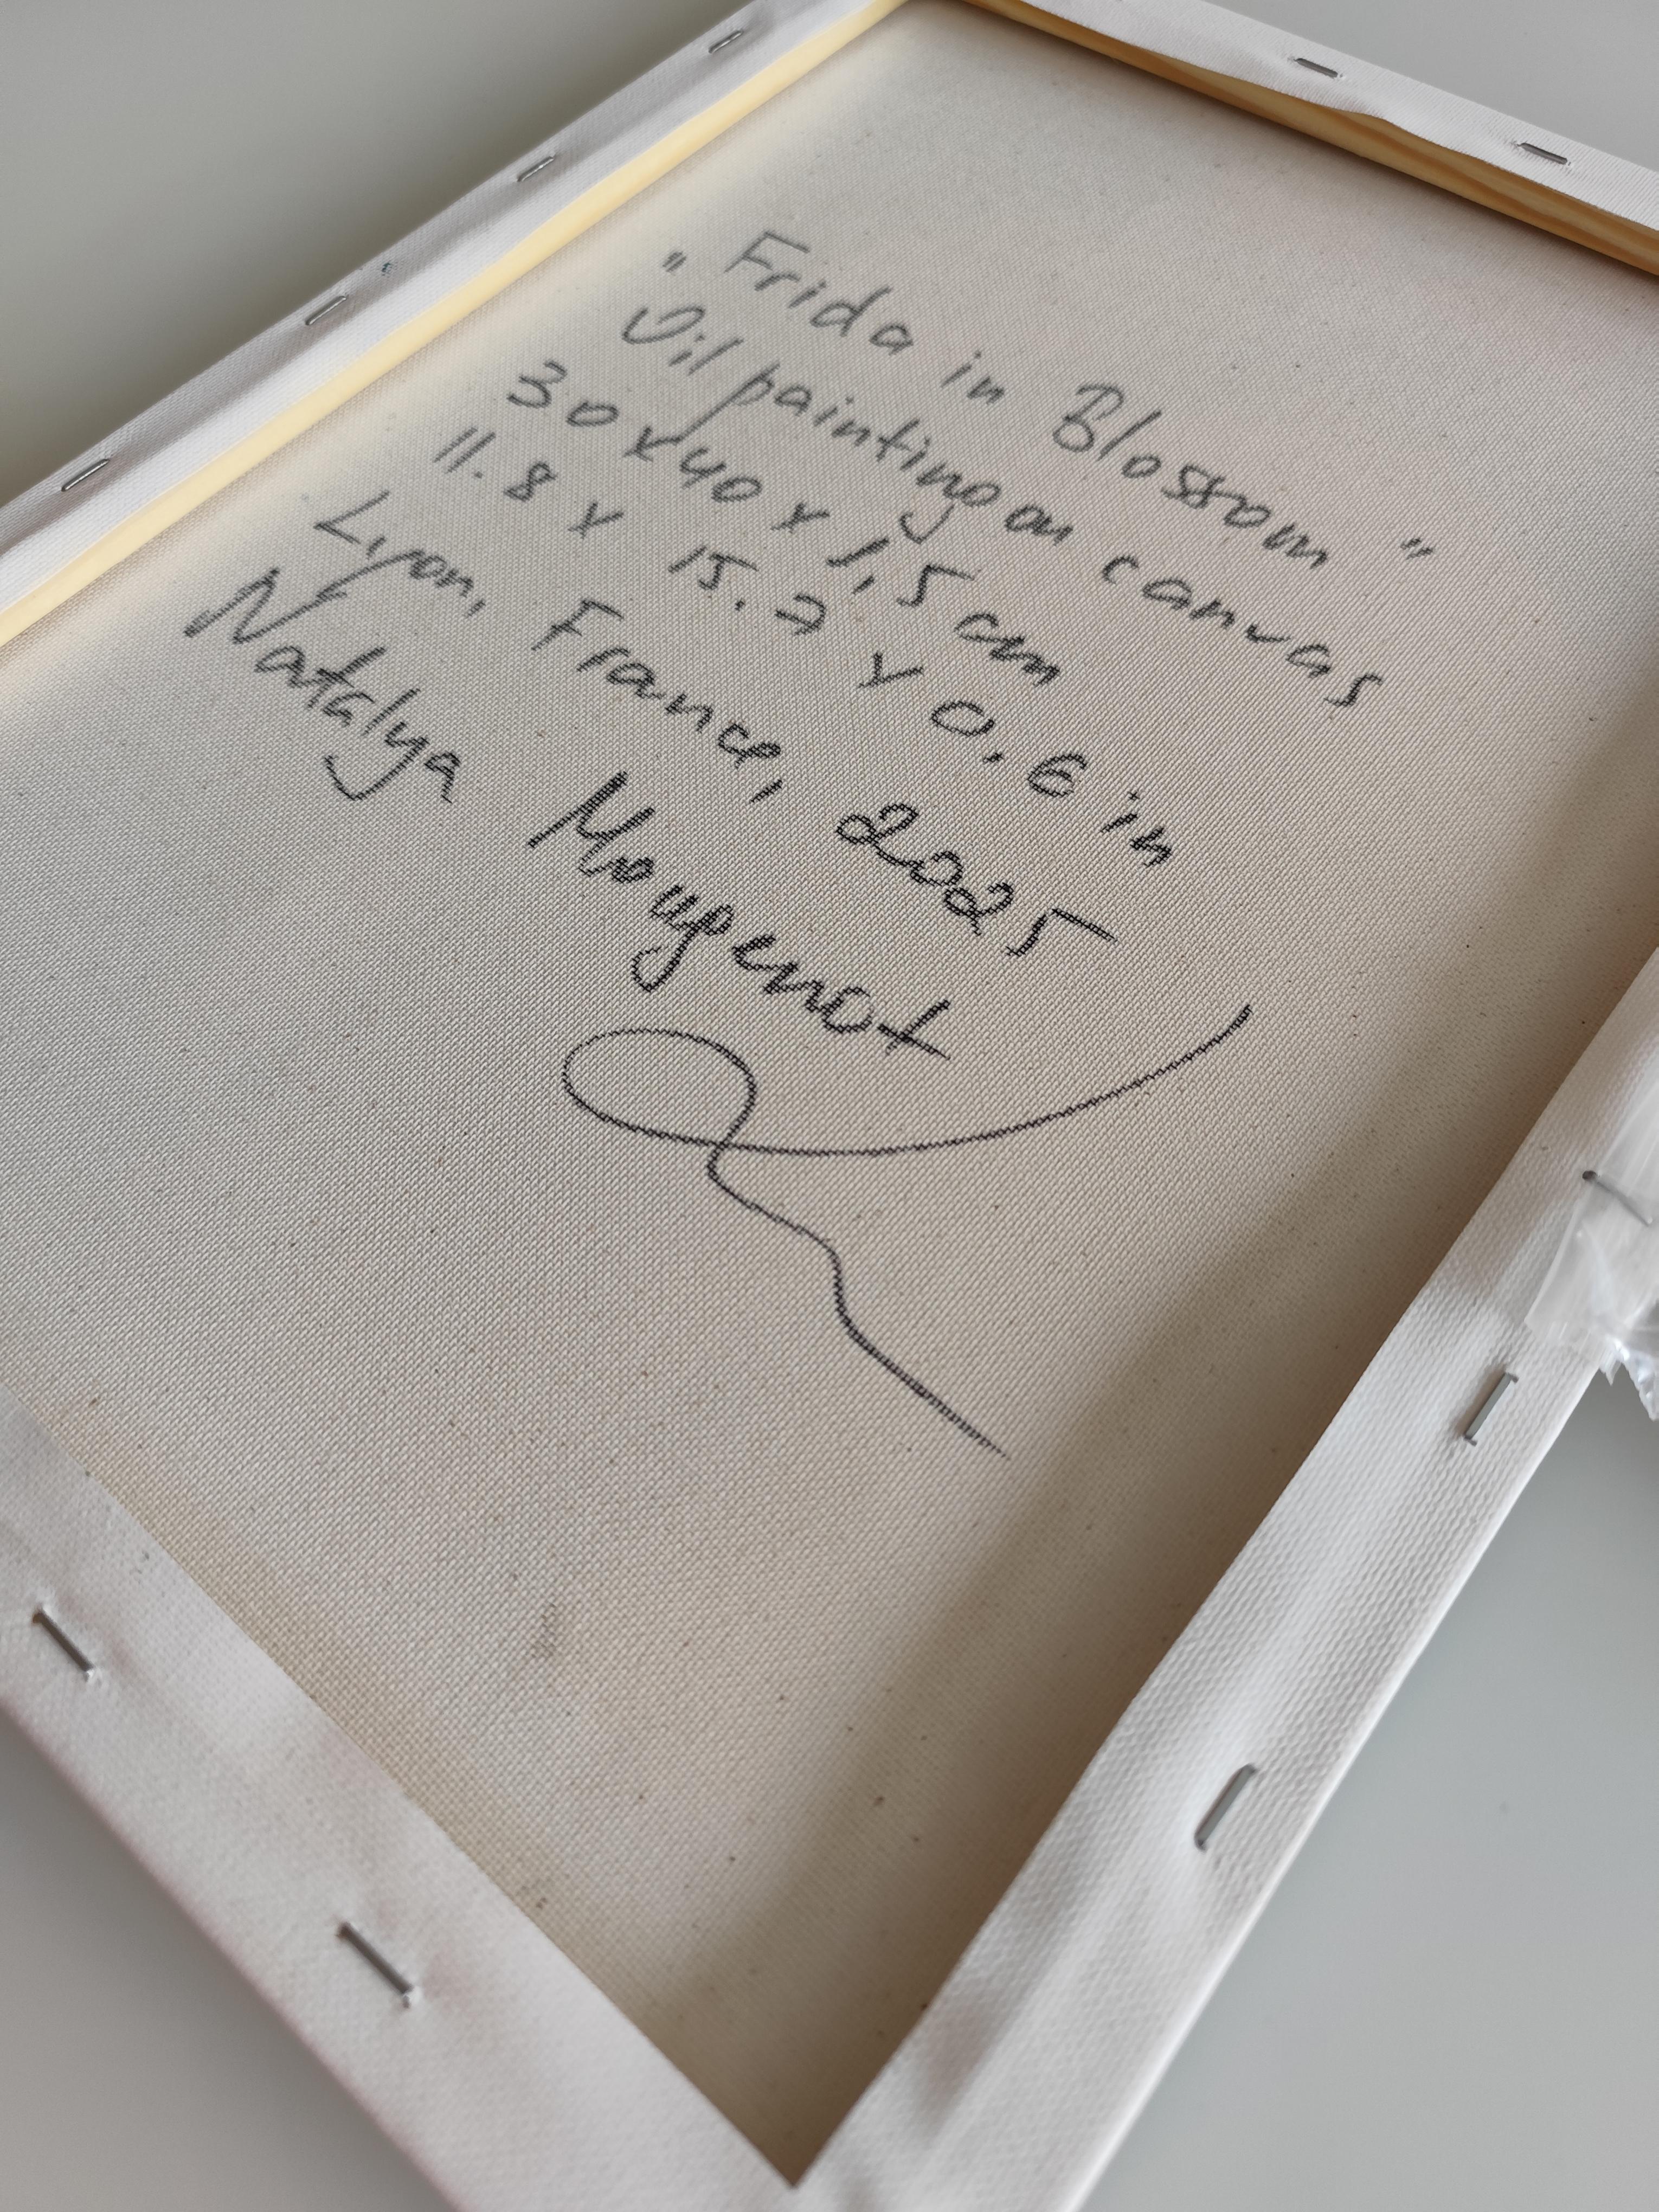 "Frida in Blossom"
Oil painting on canvas
30 x 40 x 1,5 cm
11.8 x 15.7 x 0,6 in
Lyon, France, 2025
Natalya Mougenot